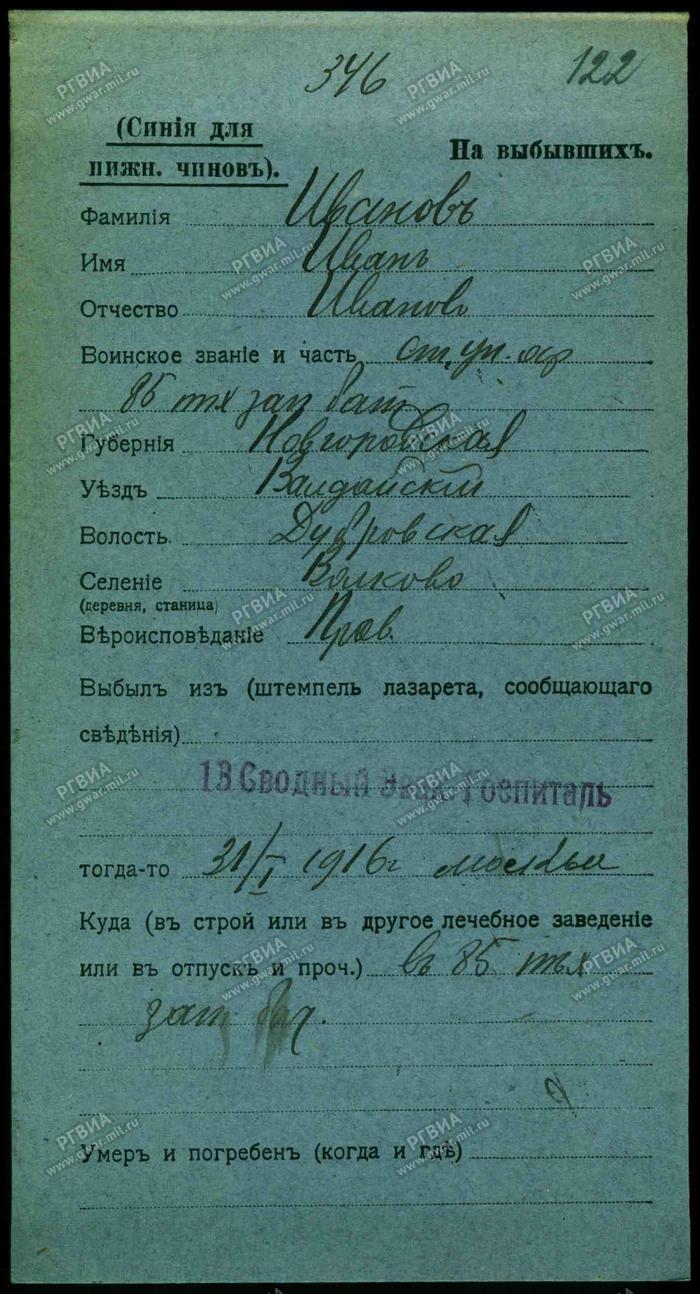 346 122
(Синія для
нижн. чиновъ).
На выбывшихъ.
Фамилія Ивановъ
Имя Иванъ
Отчество Ивановъ
Воинское званіе и часть ст. ун. оф
85 пѣх зап бат
Губернія Новгородская
Уѣздъ Валдайскій
Волость Дубровская
Селеніе Волково
(деревня, станица)
Вѣроисповѣданіе Прав.
Выбылъ изъ (штемпель лазарета, сообщающаго
свѣдѣнія)
13 Сводный Эвак. Госпиталь
тогда-то 31/I 1916 г Москвы
Куда (въ строй или въ другое лечебное заведеніе
или въ отпускъ и проч.) въ 85 пѣх
зап бат.
Умеръ и погребенъ (когда и гдѣ)
РГВИА
www.gwar.mil.ru